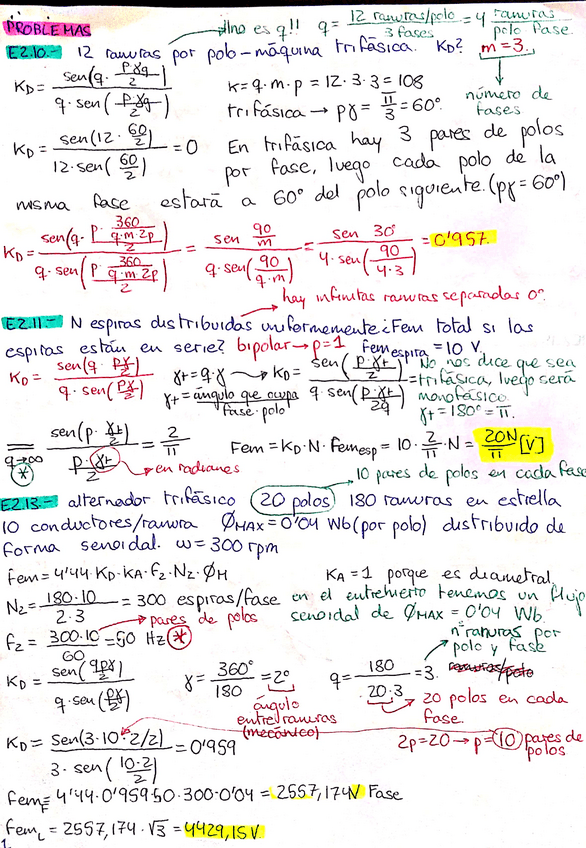 PROBLEMAS
¡¡no es q!! q = 12 ranuras/polo / 3 fases = 4 ranuras / polo fase
E2.10.- 12 ranuras por polo - máquina trifásica. KD? m=3.
número de fases
KD = sen(q · pγq/2) / q · sen(pγq/2)
K = q · m · p = 12 · 3 · 3 = 108
trifásica → pγ = π/3 = 60°
KD = sen(12 · 60/2) / 12 · sen(60/2) = 0
En trifásica hay 3 pares de polos
por fase, luego cada polo de la
misma fase estará a 60° del polo siguiente. (pγ = 60°)
KD = sen(q · p · 360/(q·m·2p) / 2) / q · sen(p · 360/(q·m·2p) / 2) = sen 90/m / q · sen(90/(q·m)) = sen 30° / 4 · sen(90/(4·3)) = 0'957
hay infinitas ranuras separadas 0°.
E2.11.- N espiras distribuidas uniformemente ¿Fem total si las
espiras están en serie? bipolar → p=1 femespira = 10 V.
KD = sen(q · pγ/2) / q · sen(pγ/2)
γt = q · γ → KD = sen(p·γt/2) / q sen(p·γt/2q) =
γt = ángulo que ocupa / fase · polo
No nos dice que sea
trifásica, luego será
monofásico.
γt = 180° = π.
= q→∞ (*) sen(p · γt/2) / p · γt/2 = 2/π
en radianes
Fem = KD · N · Femesp = 10 · 2/π · N = 20N/π [V]
10 pares de polos en cada fase
E2.13.- alternador trifásico 20 polos 180 ranuras en estrella
10 conductores/ranura ØMAX = 0'04 Wb (por polo) distribuido de
forma senoidal. ω = 300 rpm
fem = 4'44 · KD · KA · f2 · N2 · ØM
KA = 1 porque es diametral
N2 = 180·10 / 2·3 = 300 espiras/fase
pares de polos
en el entrehierro tenemos un flujo
senoidal de ØMAX = 0'04 Wb.
f2 = 300·10 / 60 = 50 Hz (*)
nº ranuras por
polo y fase
KD = sen(qpγ/2) / q · sen(pγ/2)
γ = 360° / 180 = 2°
ángulo
entre ranuras
(mecánico)
q = 180 / 20·3 = 3.
20 polos en cada
fase.
KD = Sen(3·10·2/2) / 3 · sen(10·2/2) = 0'959
2p=20 → p=10 pares de
polos
FemF = 4'44 · 0'959 · 50 · 300 · 0'04 = 2557,174V Fase
femL = 2557,174 · √3 = 4429,15V
1.